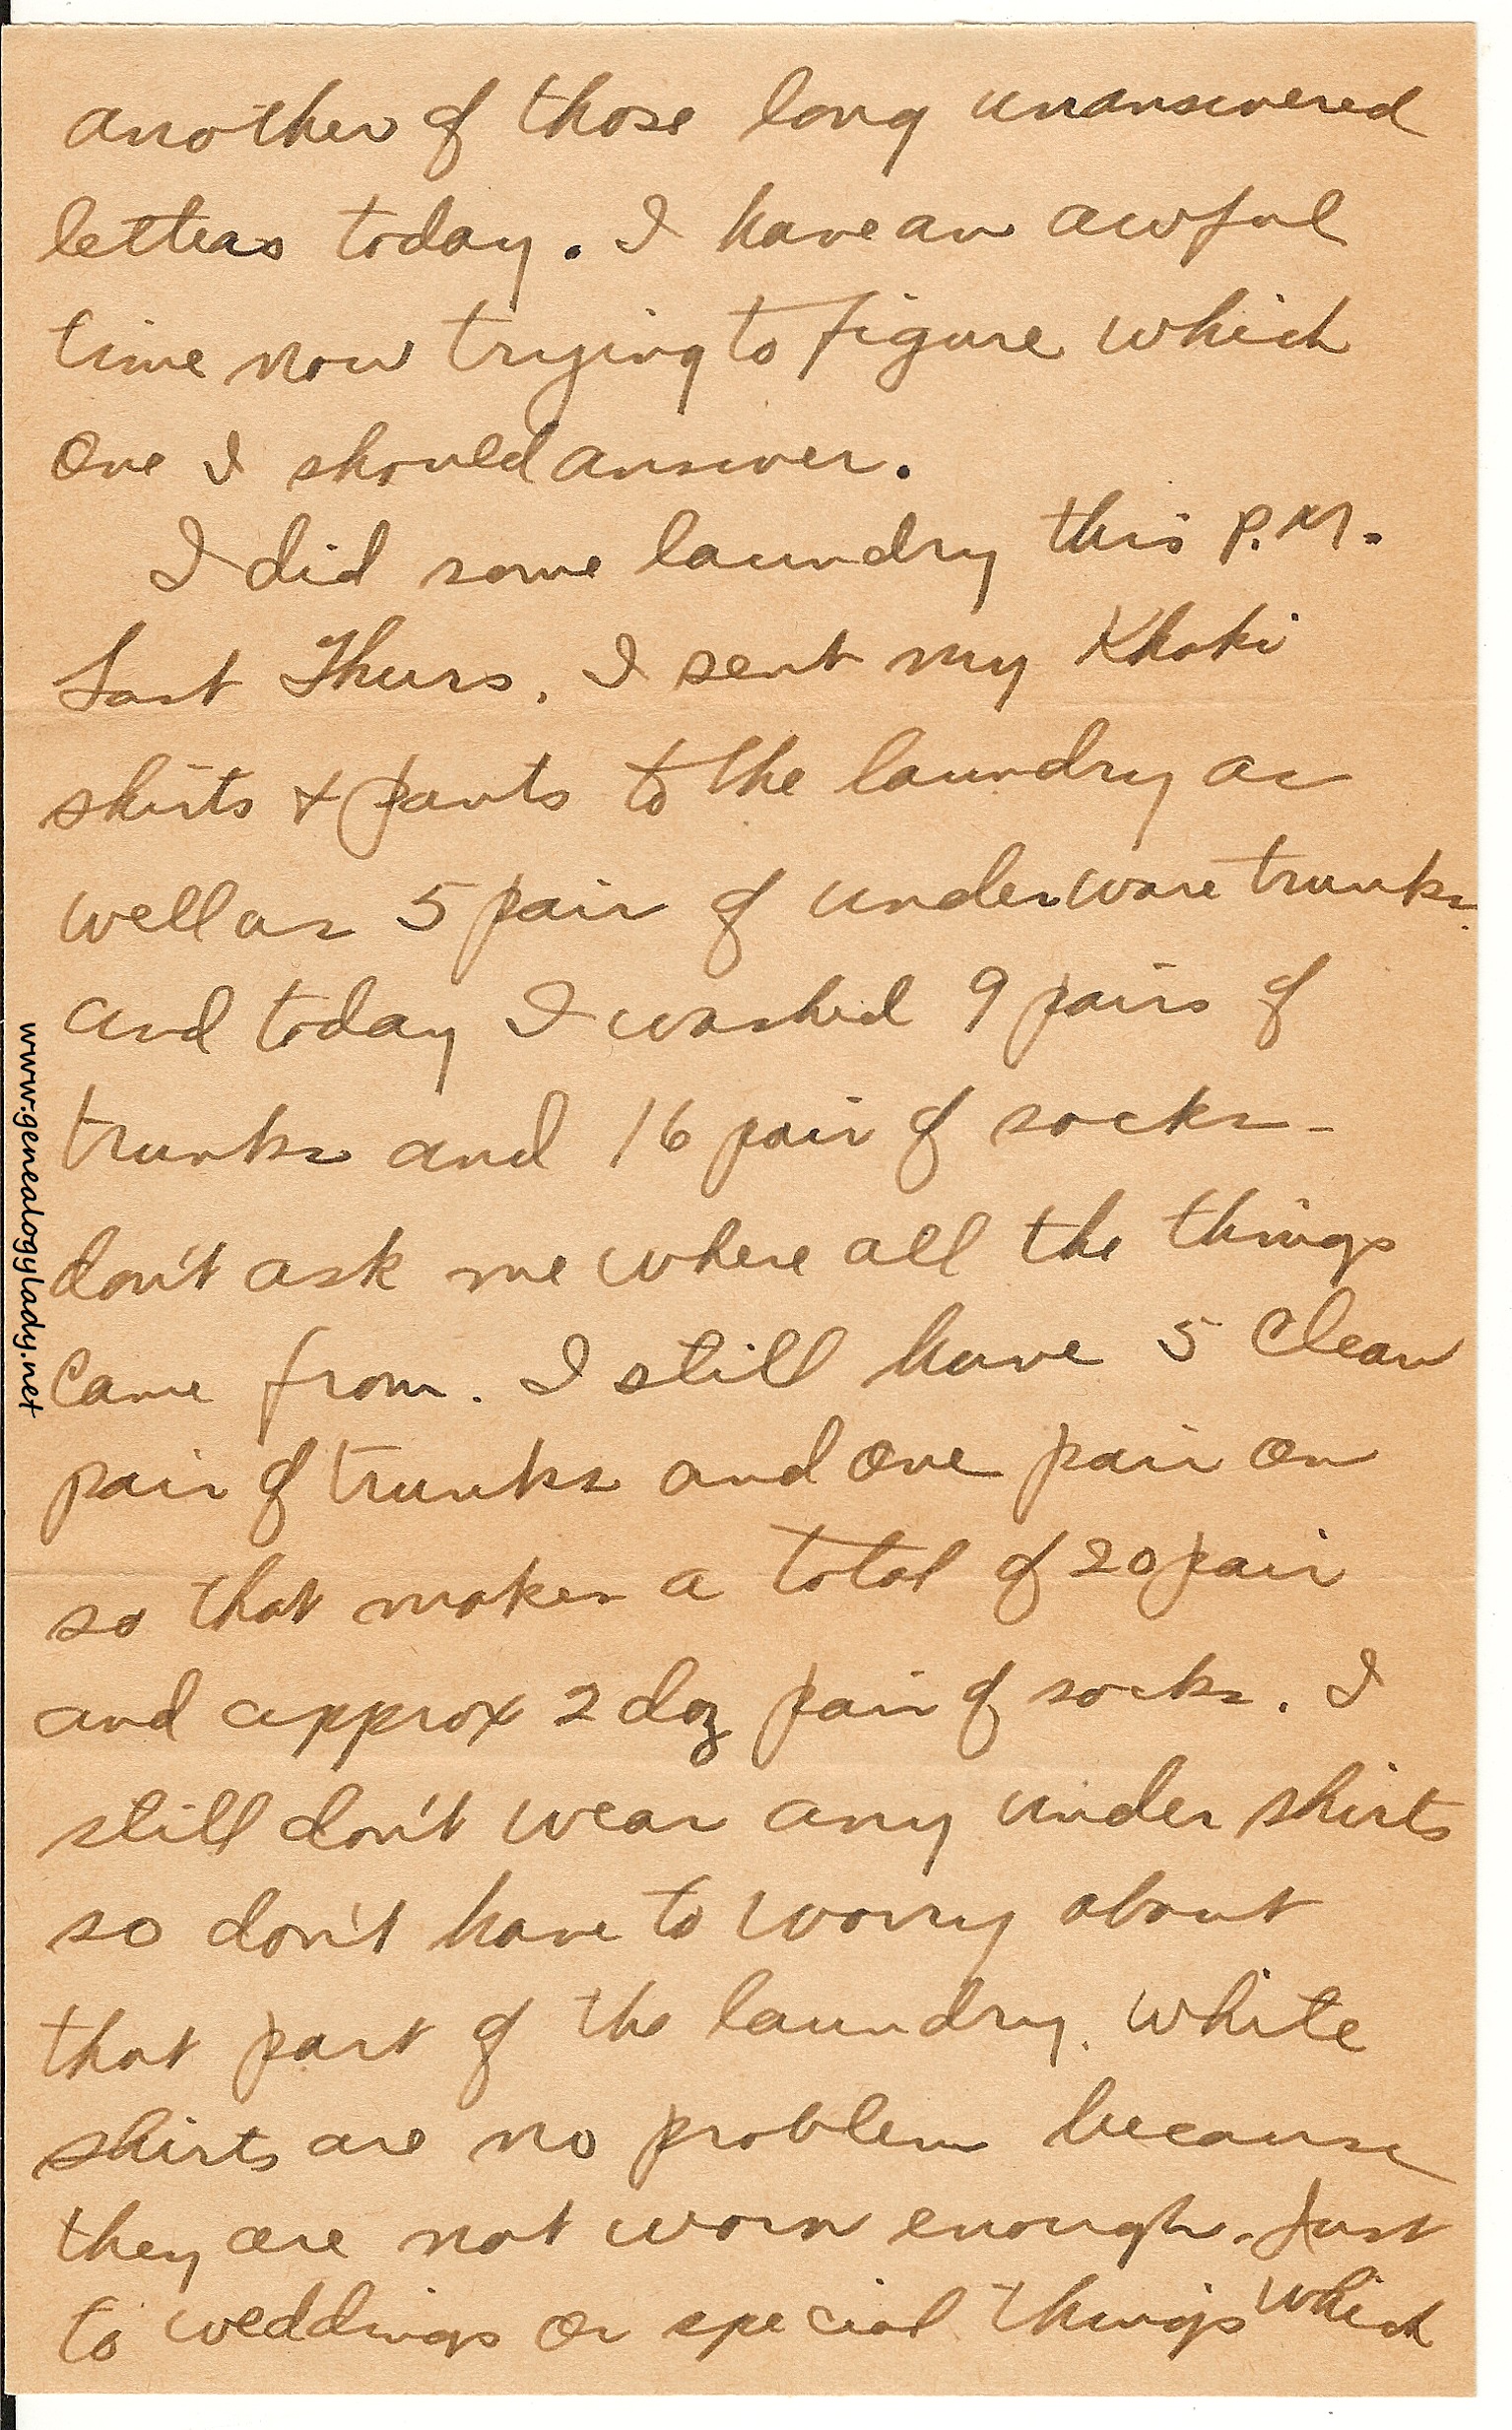 another of those long unanswered
letters today. I have an awful
time now trying to figure which
one I should answer.
I did some laundry this P.M.
Last Thurs. I sent my Khaki
shirts + pants to the laundry as
well as 5 pair of underware trunks.
and today I washed 9 pairs of
trunks and 16 pair of socks -
don't ask me where all the things
came from. I still have 5 clean
pair of trunks and one pair on
so that makes a total of 20 pair
and approx 2 doz pair of socks. I
still don't wear any under shirts
so don't have to worry about
that part of the laundry. White
shirts are no problem because
they are not worn enough. Just
to weddings or special things which
www.genealogylady.net